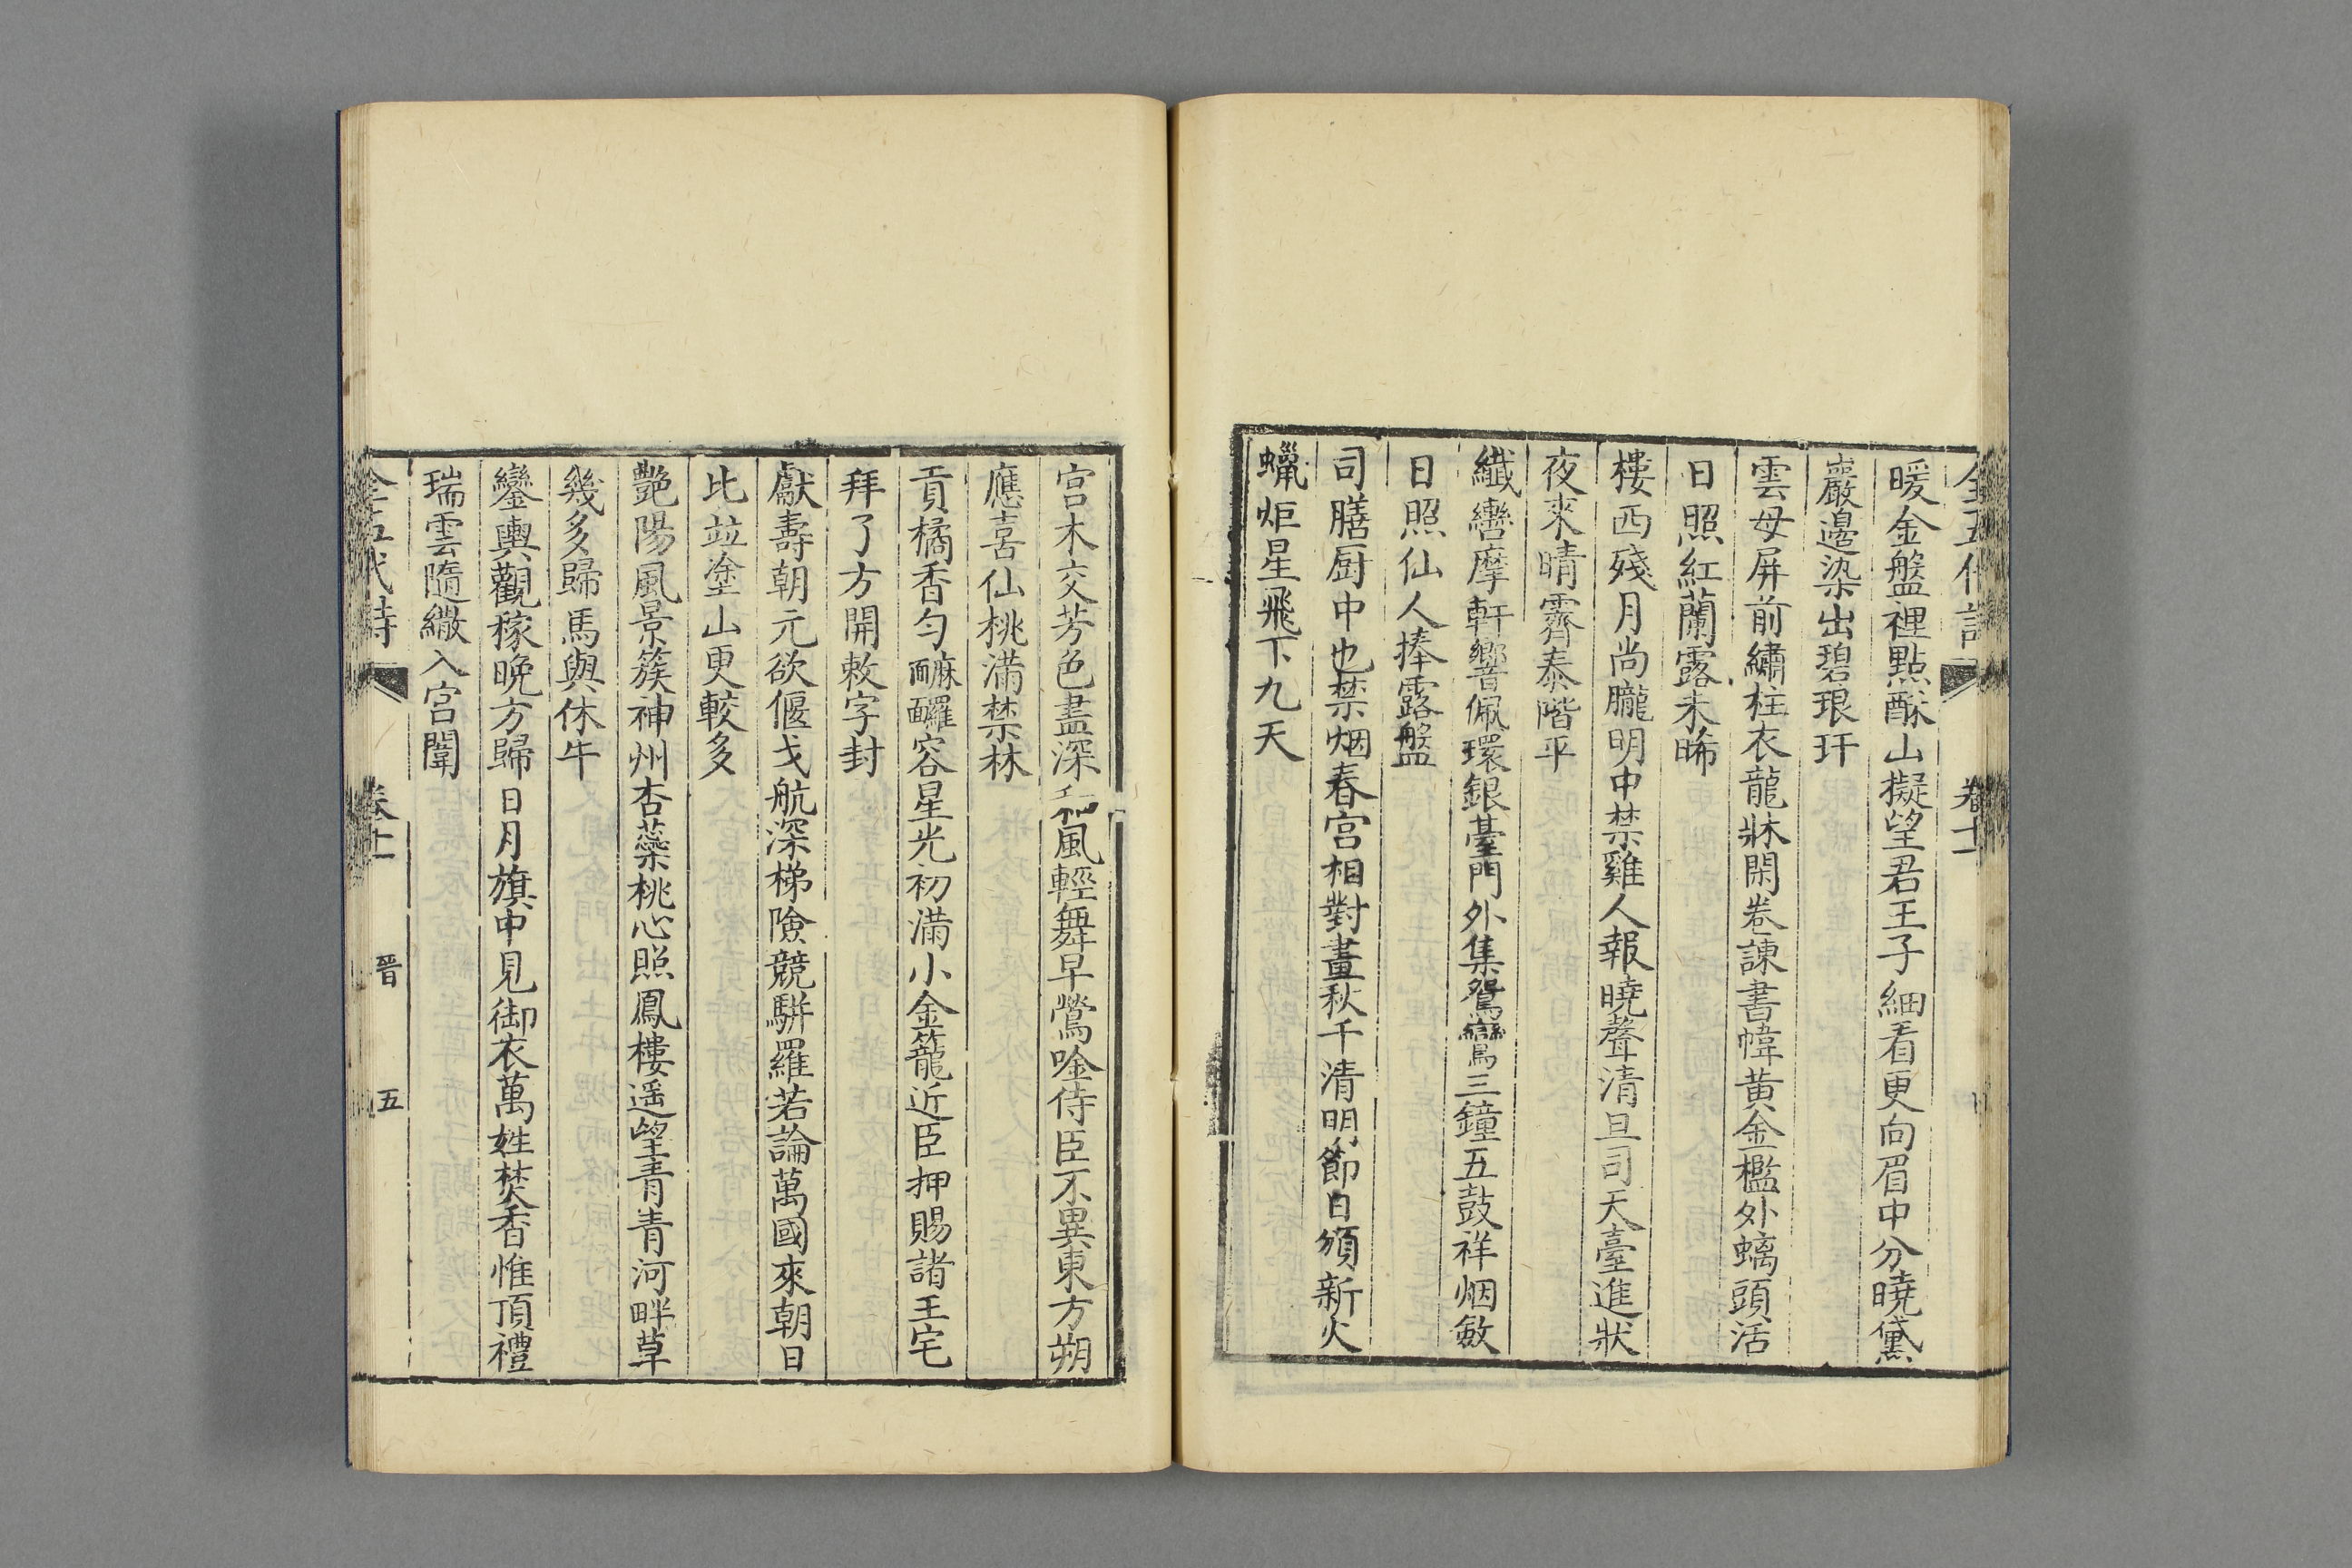 全五代詩 卷十一
暖金盤裡點酥山擬望君王子細看更向眉中分曉黛
巖邊染出碧琅玕
雲母屏前繡柱衣龍牀閑卷諫書幃黄金檻外螭頭活
日照紅蘭露未晞
樓西殘月尚朧明中禁雞人報曉聲清旦司天臺進狀
夜來晴霽泰階平
纖轡摩軒響佩環銀臺門外集鴛鸞三鐘五鼓祥烟斂
日照仙人捧露盤
司膳厨中也禁烟春宫相對畫秋千清明節日頒新火
蠟炬星飛下九天
宫木交芳色盡深和風輕舞早鶯唫侍臣不異東方朔
應喜仙桃滿禁林
貢橘香匀䕷䤘容星光初滿小金籠近臣押賜諸王宅
拜了方開敕字封
獻壽朝元欲偃戈航深梯險競駢羅若論萬國來朝日
比竝塗山更較多
艷陽風景簇神州杏蘂桃心照鳳樓遥望青青河畔草
幾多歸馬與休牛
鑾輿觀稼晩方歸日月旗中見御衣萬姓焚香惟頂禮
瑞雲隨繖入宫闈
全五代詩 卷十一 晋 五